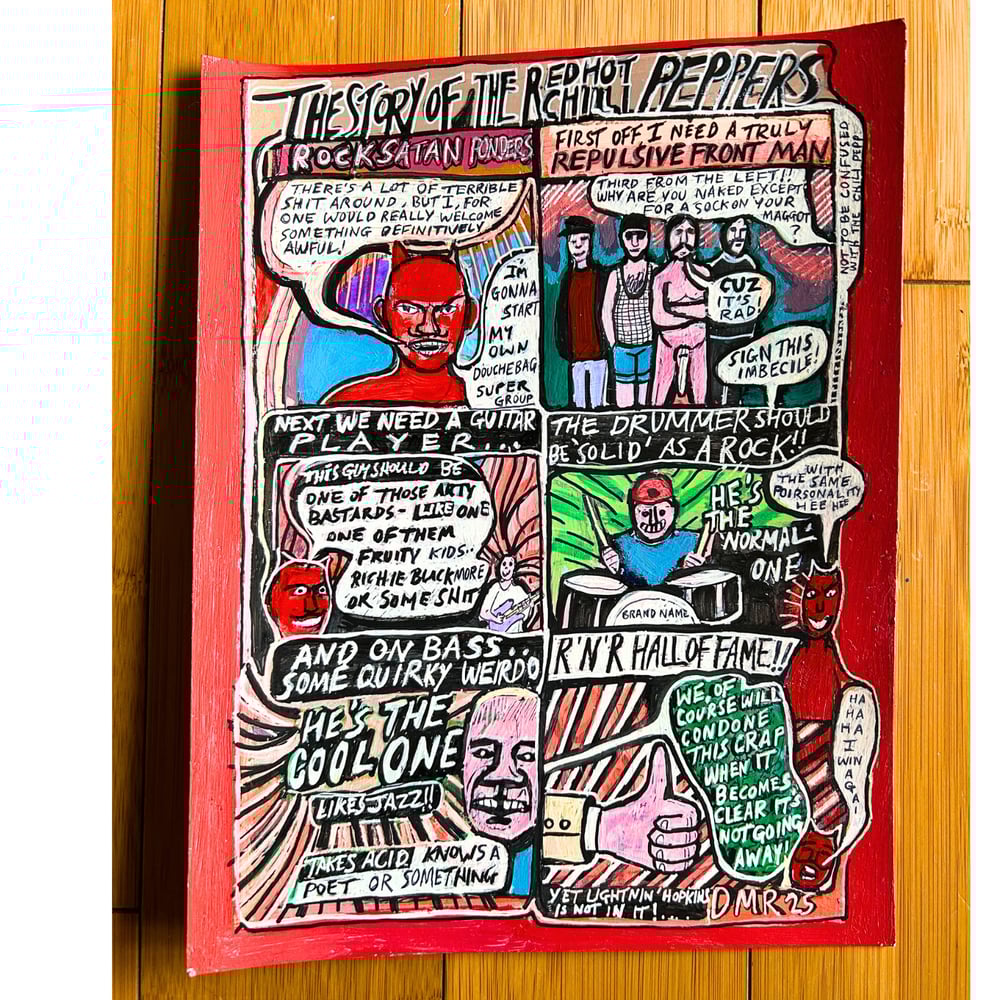 THE STORY OF THE RED HOT
CHILLI PEPPERS
NOT TO BE CONFUSED
WITH THE CHILI PEPP
ROCKSATAN PONDERS
THERE'S A LOT OF TERRIBLE
SHIT AROUND, BUT I, FOR
ONE WOULD REALLY WELCOME
SOMETHING DEFINITIVELY
AWFUL!
I'M
GONNA
START
MY
OWN
DOUCHEBAG
SUPER
GROUP
FIRST OFF I NEED A TRULY
REPULSIVE FRONT MAN
THIRD FROM THE LEFT!!
WHY ARE YOU NAKED EXCEPT
FOR A SOCK ON YOUR
MAGGOT
?
CUZ
IT'S
RAD!
SIGN THIS
IMBECILE!
NEXT WE NEED A GUITAR
PLAYER...
THIS GUY SHOULD BE
ONE OF THOSE ARTY
BASTARDS- LIKE ONE
ONE OF THEM
FRUITY KIDS..
RICHIE BLACKMORE
OR SOME SHIT
THE DRUMMER SHOULD
BE 'SOLID' AS A ROCK!!
WITH
THE SAME
POIRSONALITY
HEE HEE
HE'S
THE
NORMAL
ONE
BRAND NAME
AND ON BASS..
SOME QUIRKY WEIRDO
HE'S THE
COOL ONE
LIKES JAZZ!!
TAKES ACID! KNOWS A
POET OR SOMETHING
R'N'R HALL OF FAME!!
WE, OF
COURSE WILL
CONDONE
THIS CRAP
WHEN IT
BECOMES
CLEAR IT'S
NOT GOING
AWAY!
HA
HA
HA
I
WIN
AGA
YET LIGHTNIN' HOPKINS
IS NOT IN IT!....
DMR25